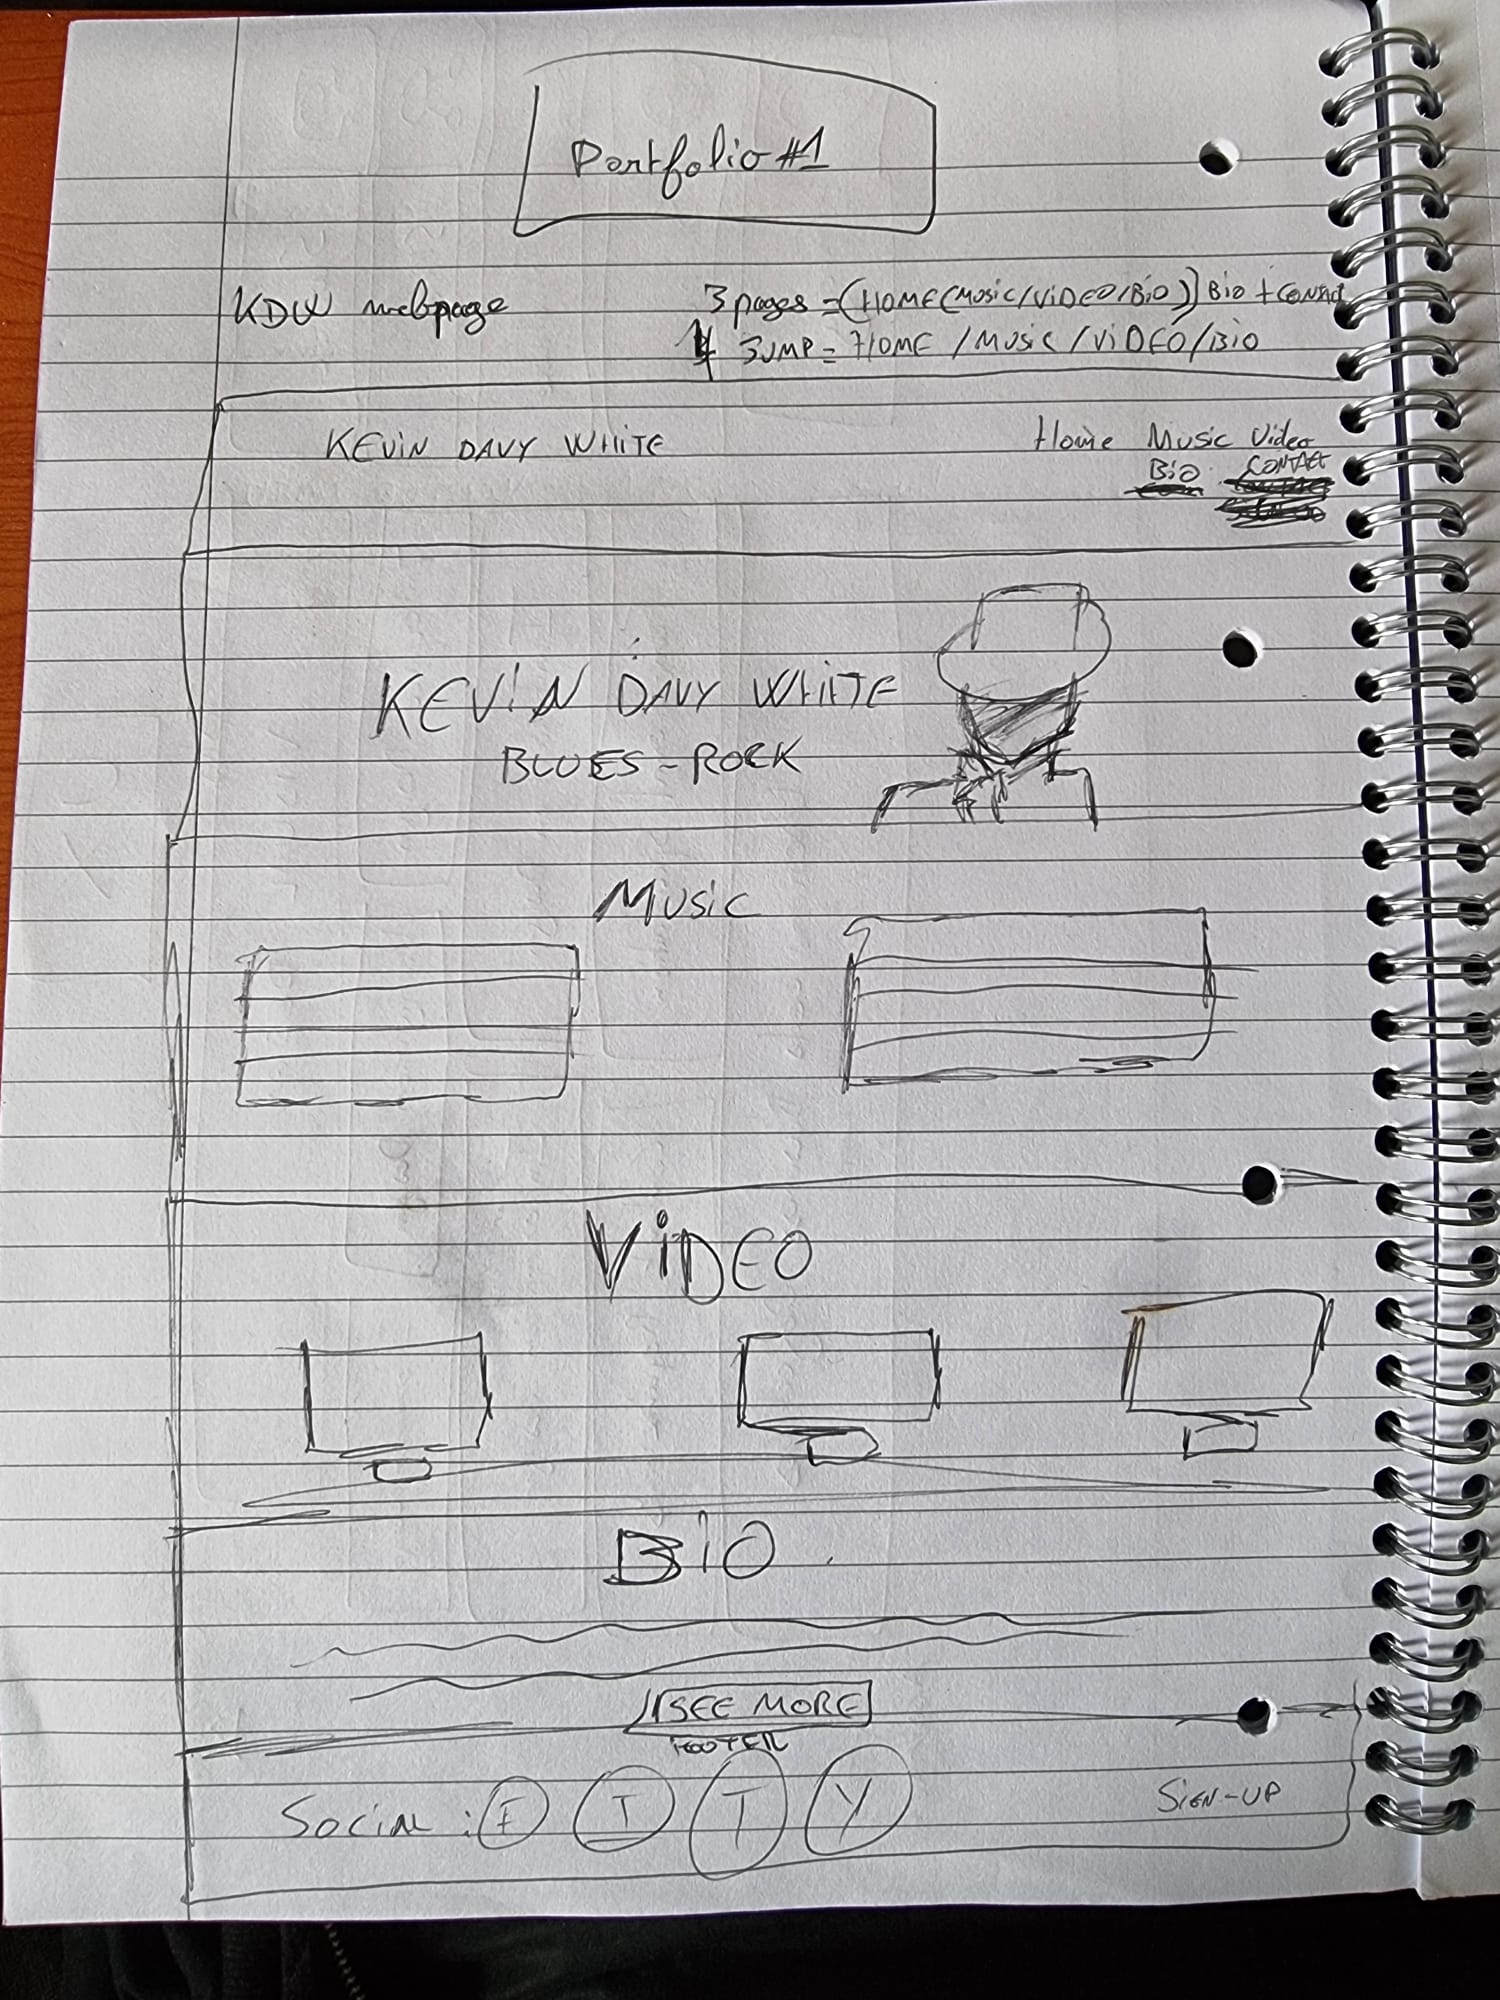 Portfolio #1
KDW webpage
3 pages = (HOME (MUSIC/VIDEO/BIO)) BIO + CONTACT
4 JUMP = HOME / MUSIC / VIDEO / BIO
KEVIN DAVY WHITE
Home Music Video
BIO CONTACT
KEVIN DAVY WHITE
BLUES - ROCK
MUSIC
VIDEO
BIO
SEE MORE
FOOTER
SOCIAL : F I T Y
SIGN-UP